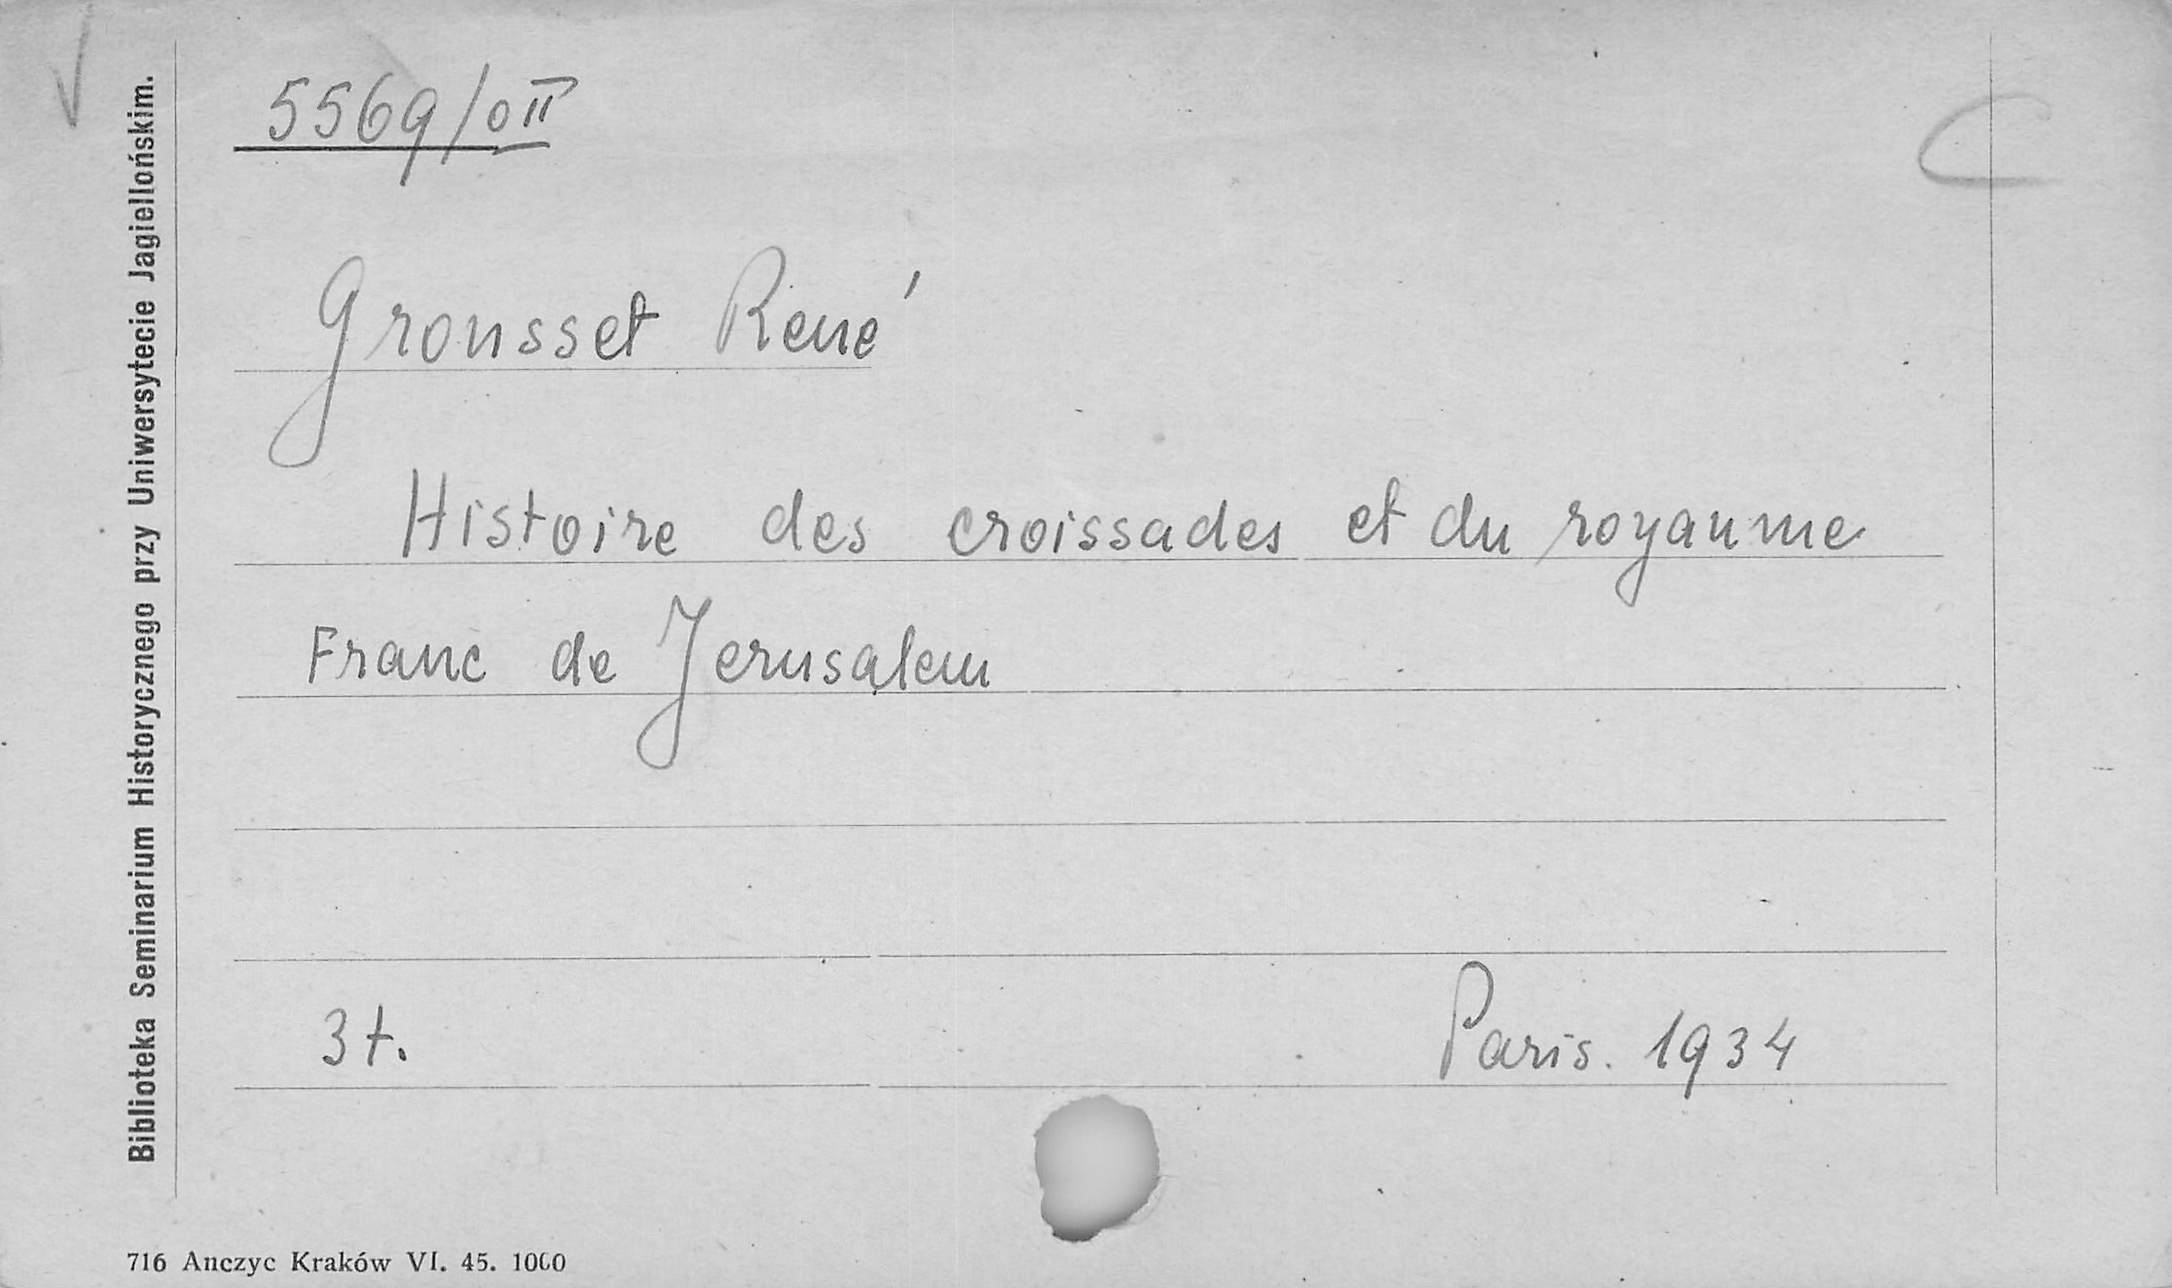 5569/0II
Grousset René
Histoire des croissades et du royaume
Franc de Jerusalem
3 t.
Paris. 1934
Biblioteka Seminarium Historycznego przy Uniwersytecie Jagiellońskim.
716 Anczyc Kraków VI. 45. 1000